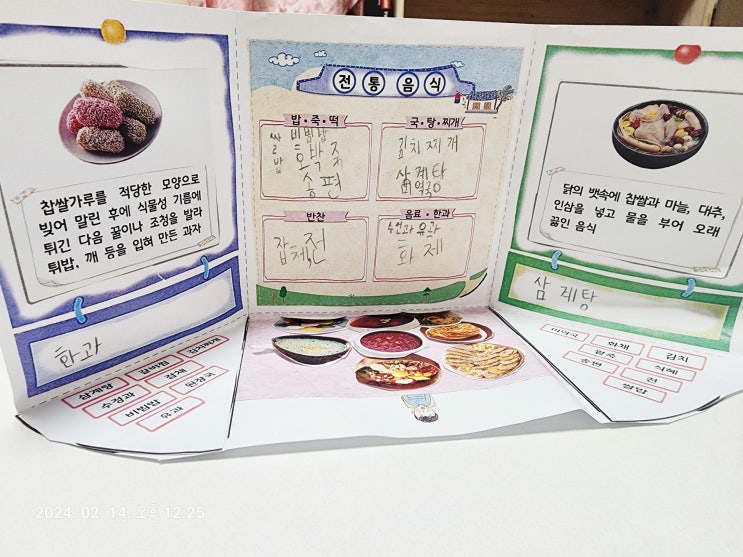 찹쌀가루를 적당한 모양으로
빚어 말린 후에 식물성 기름에
튀긴 다음 꿀이나 조청을 발라
튀밥, 깨 등을 입혀 만든 과자
화과
전통음식
밥·죽·떡
쌀밥
비빔밥
호박죽
송편
국·탕·찌개
김치찌개
삼계탕
미역국
반찬
잡체, 전
음료·한과
수정과 유과
화제
닭의 뱃속에 찹쌀과 마늘, 대추,
인삼을 넣고 물을 부어 오래
끓인 음식
삼계탕
삼계탕 갈비찜 김치찌개
수정과 잡채 된장국
비빔밥
유과
미역국 화채 김치
팥죽 식혜
송편 전
쌀밥
2024. 02. 14. 오후 12:25